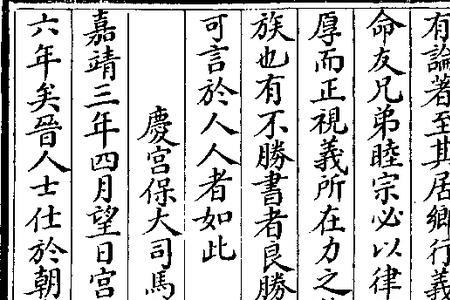 有論著至其居鄉行義
命友兄弟睦宗必以律
厚而正視義所在力之
族也有不勝書者良勝
可言於人人者如此
慶宮保大司馬
嘉靖三年四月望日宮
六年矣晉人士仕於朝